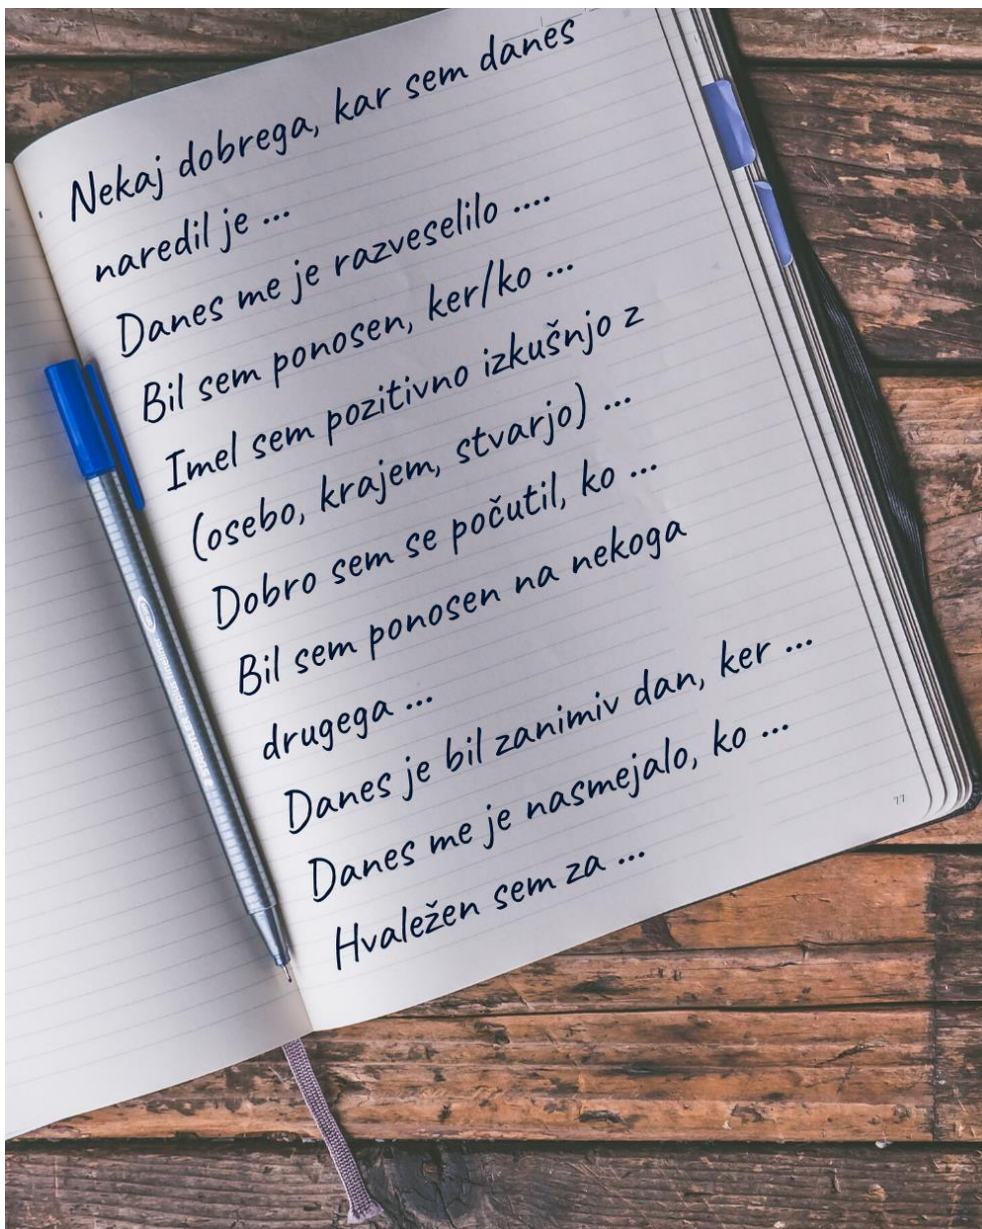 Nekaj dobrega, kar sem danes
naredil je ...
Danes me je razveselilo ....
Bil sem ponosen, ker/ko ...
Imel sem pozitivno izkušnjo z
(osebo, krajem, stvarjo) ...
Dobro sem se počutil, ko ...
Bil sem ponosen na nekoga
drugega ...
Danes je bil zanimiv dan, ker ...
Danes me je nasmejalo, ko ...
Hvaležen sem za ...
77